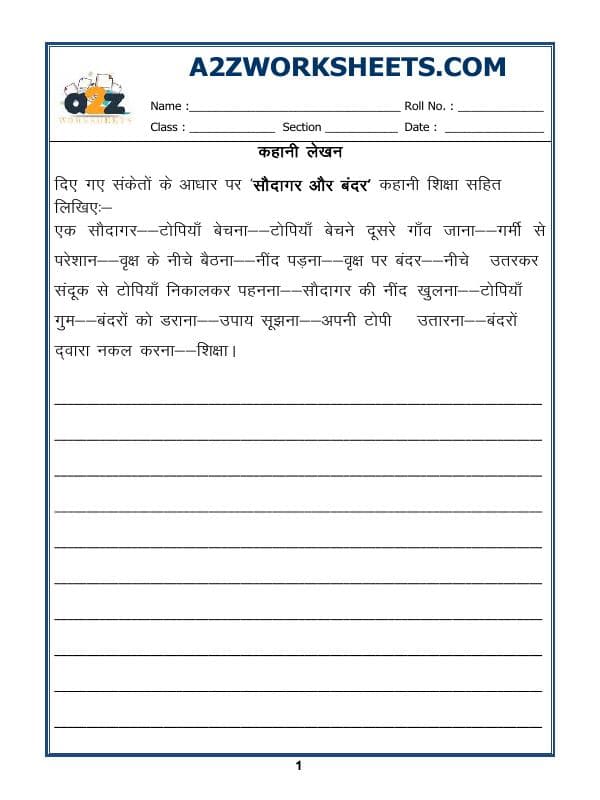 A2ZWORKSHEETS.COM
a2z
WORKSHEETS
Name :______________________________ Roll No. : ____________
Class : ____________ Section __________ Date : ______________
कहानी लेखन
दिए गए संकेतों के आधार पर ‘सौदागर और बंदर’ कहानी शिक्षा सहित
लिखिए:–
एक सौदागर––टोपियाँ बेचना––टोपियाँ बेचने दूसरे गाँव जाना––गर्मी से
परेशान––वृक्ष के नीचे बैठना––नींद पड़ना––वृक्ष पर बंदर––नीचे उतरकर
संदूक से टोपियाँ निकालकर पहनना––सौदागर की नींद खुलना––टोपियाँ
गुम––बंदरों को डराना––उपाय सूझना––अपनी टोपी उतारना––बंदरों
द्वारा नकल करना––शिक्षा।
1